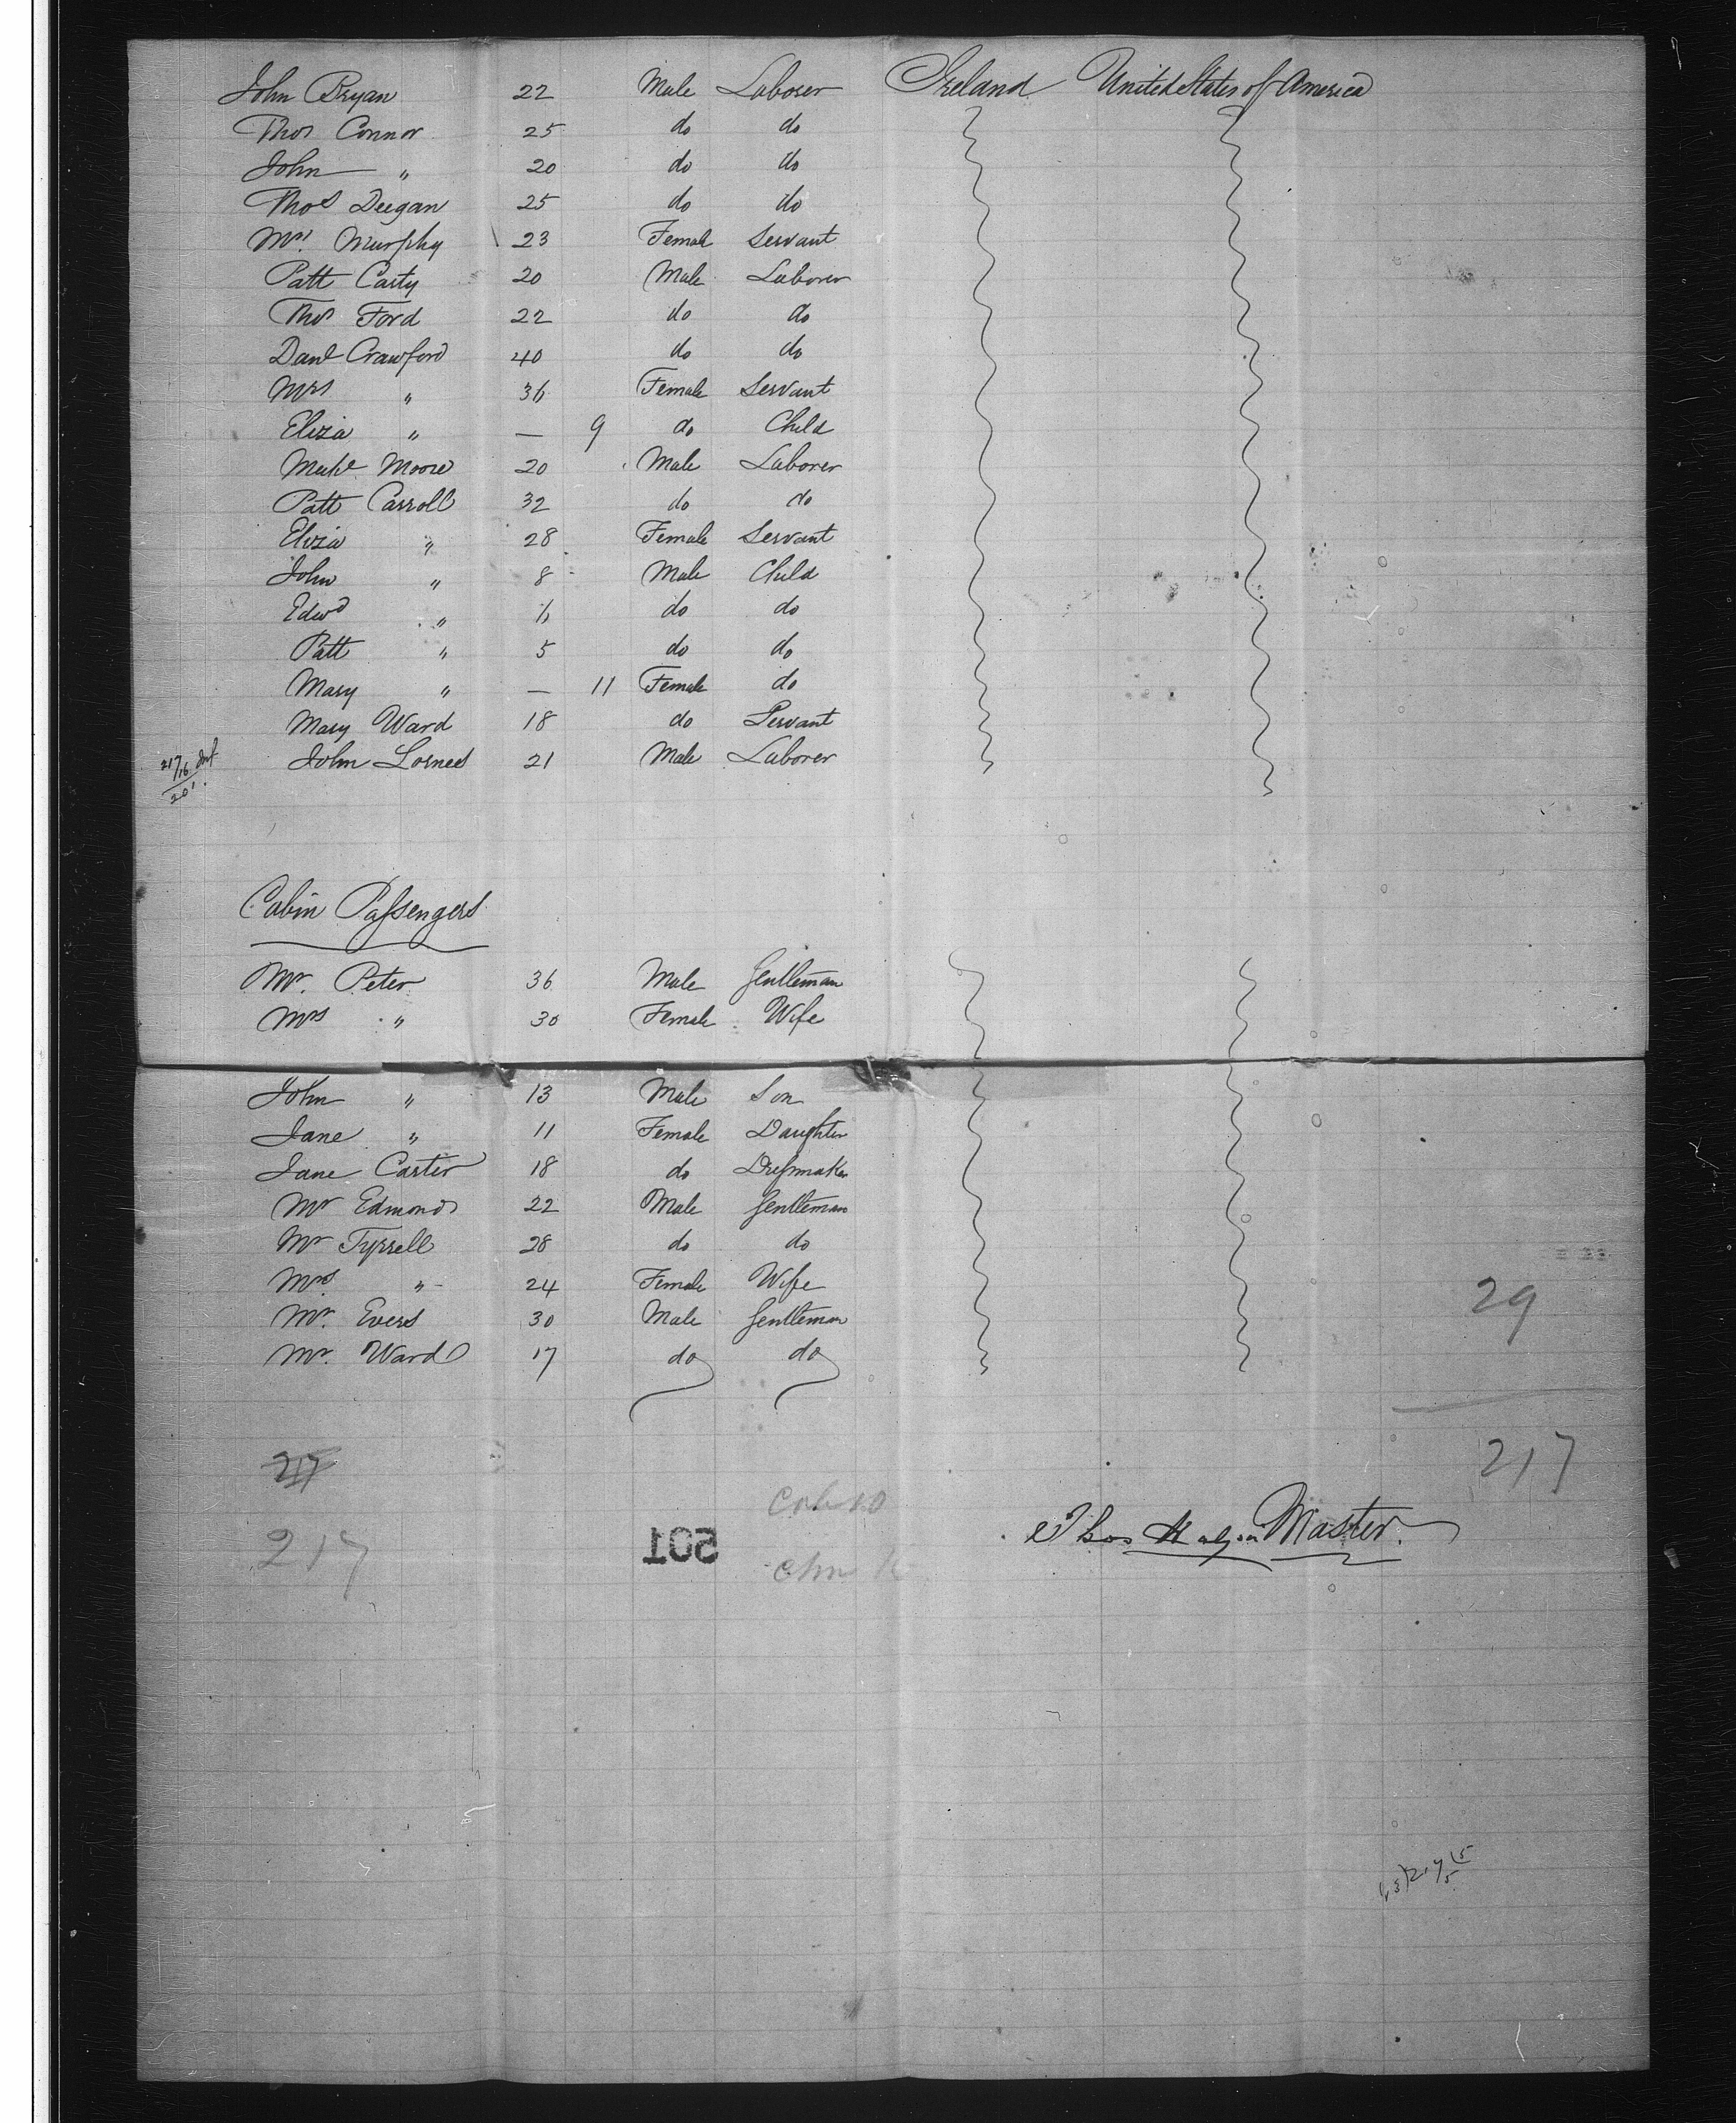 John Bryan 22 Male Laborer Ireland United States of America
Thos Connor 25 do do
John " 20 do do
Thos Deegan 25 do do
Mrs. Murphy 23 Female Servant
Patt Casty 20 Male Laborer
Thos Ford 22 do do
Danl Crawford 40 do do
Mrs " 36 Female Servant
Eliza " — 9 do Child
Michl Moore 20 Male Laborer
Patt Carroll 32 do do
Eliza " 28 Female Servant
John " 8 Male Child
Edwd " 6 do do
Patt " 5 do do
Mary " — 11 Female do
Mary Ward 18 do Servant
217/16 Inf John 21 Male Laborer
201.
Cabin Passengers
Mr. Peter 36 Male Gentleman
Mrs " 30 Female Wife
John " 13 Male Son
Jane " 11 Female Daughter
Jane Carter 18 do Dressmaker
Mr Edmonds 22 Male Gentleman
Mr Tyrrell 28 do do
Mrs " 24 Female Wife
Mr. Evers 30 Male Gentleman
Mr. Ward 17 do do
29
217
217
Thos Master.
217
501